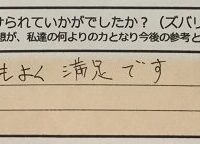 けられていかがでしたか？（ズバリ
想が、私達の何よりの力となり今後の参考と
もよく 満足です